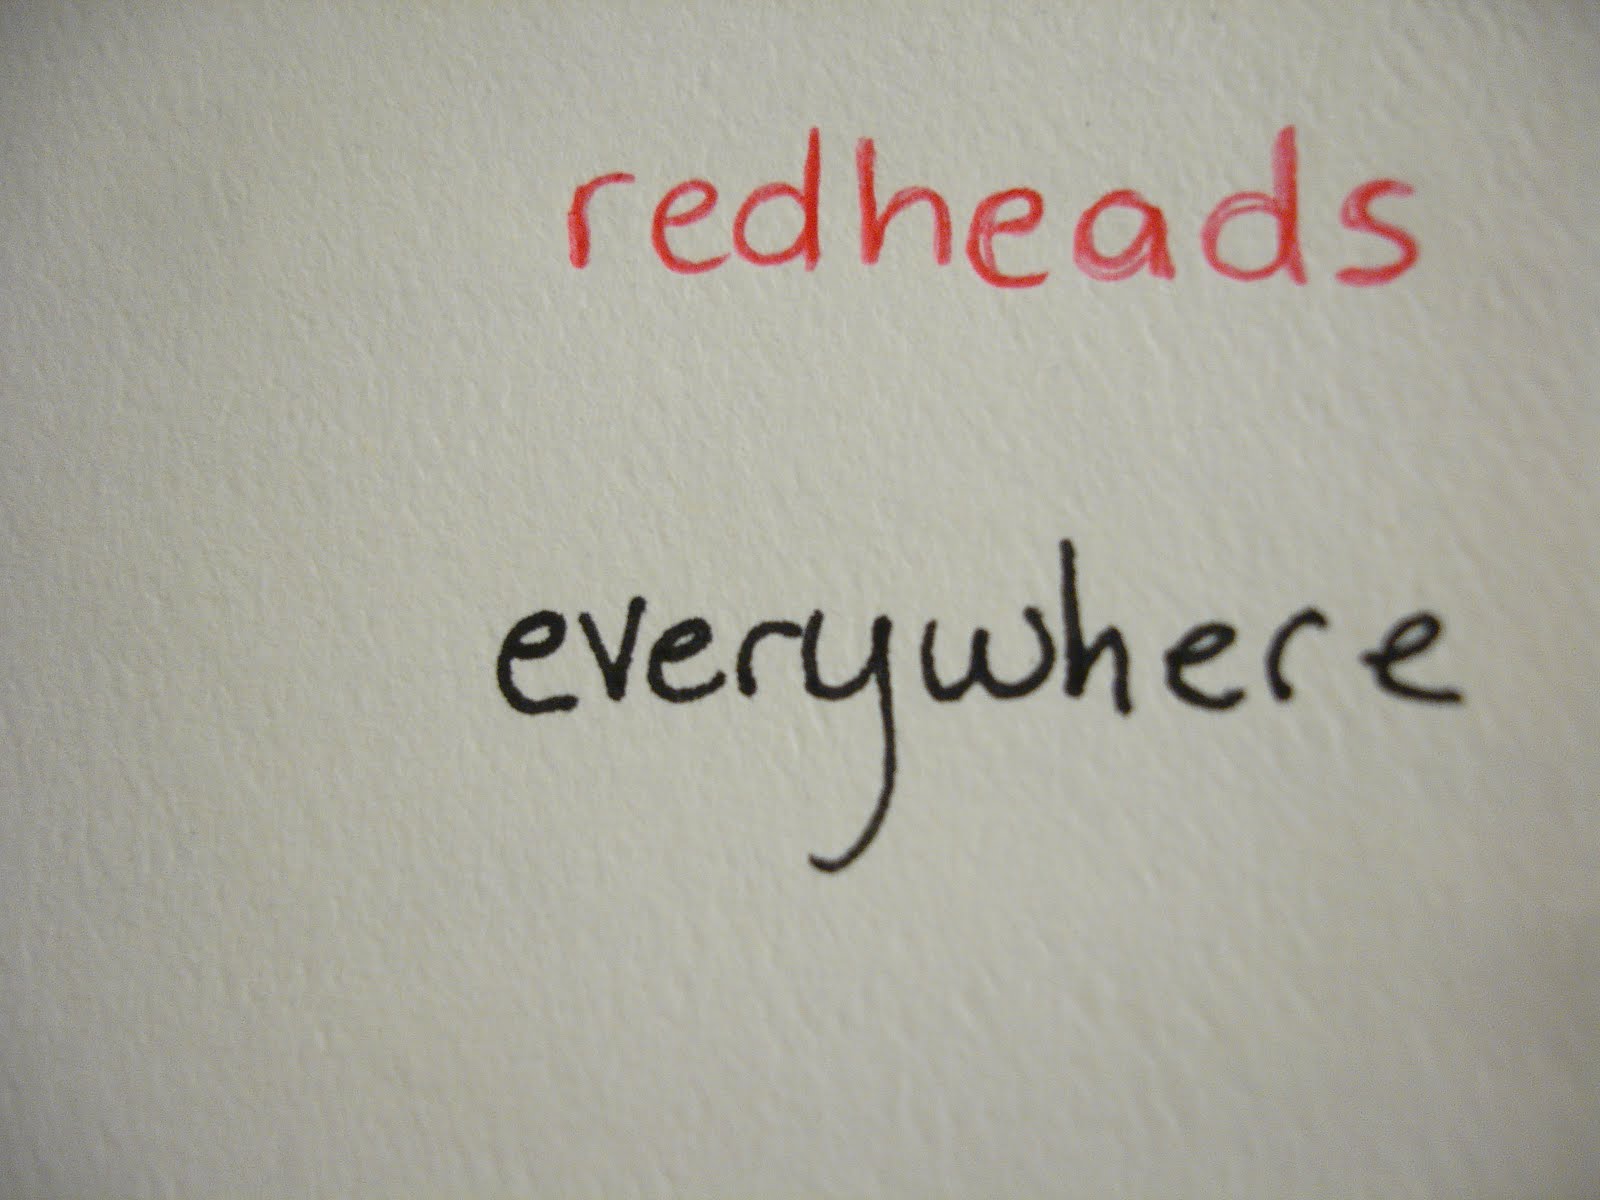 redheads
everywhere